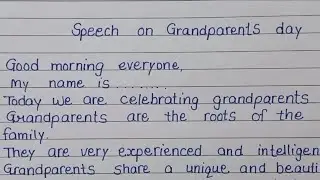 Speech on Grandparents day
Good morning everyone,
My name is ........
Today we are celebrating grandparents
Grandparents are the roots of the
family.
They are very experienced and intelligen
Grandparents share a unique and beauti